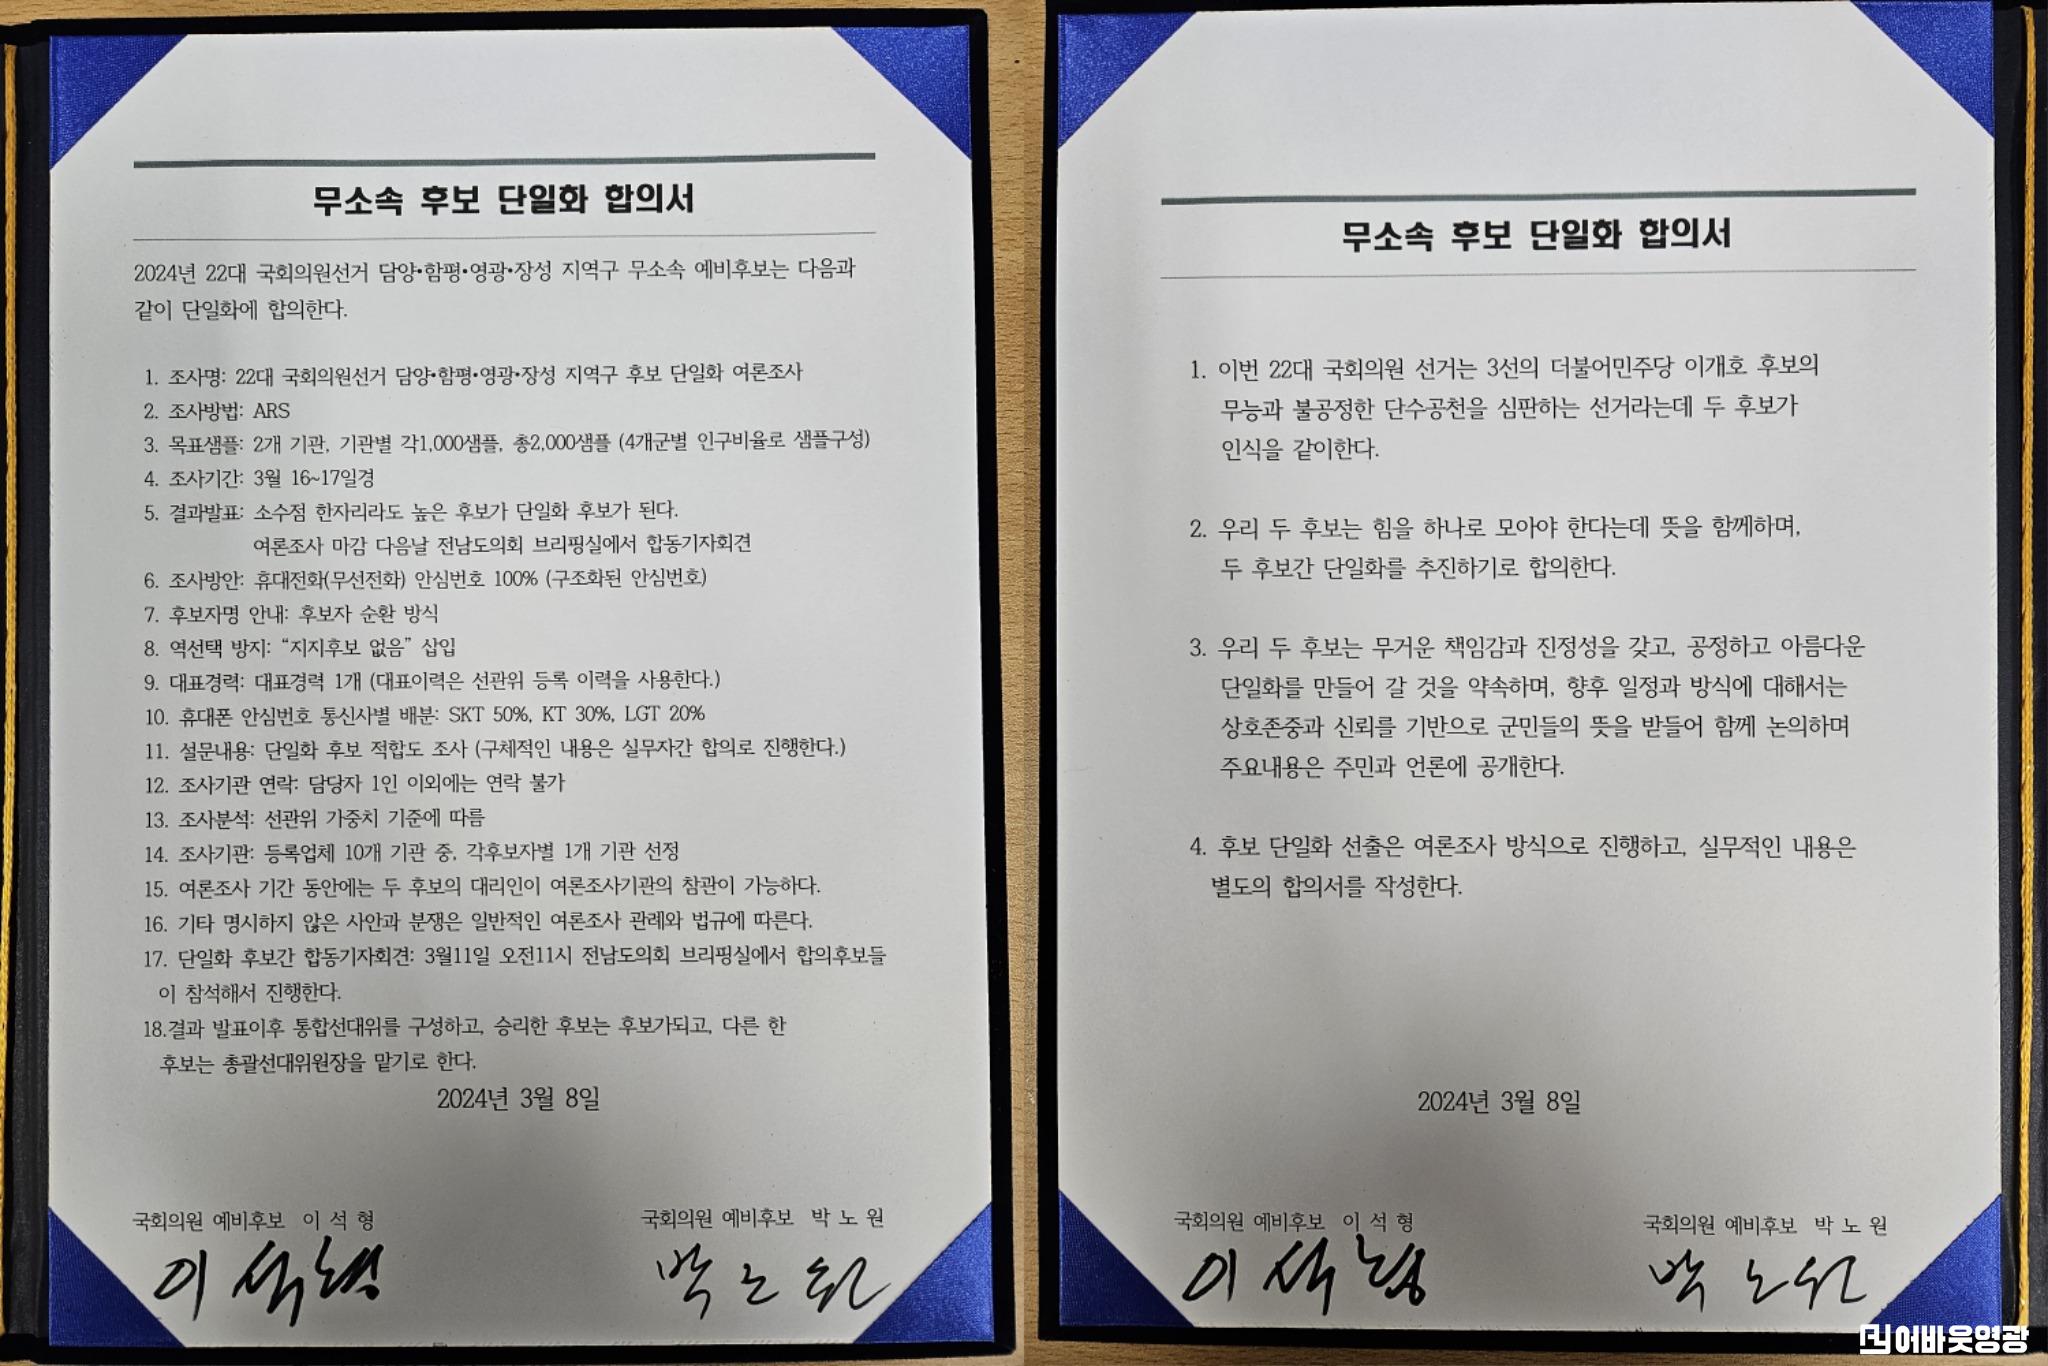 무소속 후보 단일화 합의서
2024년 22대 국회의원선거 담양•함평•영광•장성 지역구 무소속 예비후보는 다음과
같이 단일화에 합의한다.
1. 조사명: 22대 국회의원선거 담양•함평•영광•장성 지역구 후보 단일화 여론조사
2. 조사방법: ARS
3. 목표샘플: 2개 기관, 기관별 각1,000샘플, 총2,000샘플 (4개군별 인구비율로 샘플구성)
4. 조사기간: 3월 16~17일경
5. 결과발표: 소수점 한자리라도 높은 후보가 단일화 후보가 된다.
여론조사 마감 다음날 전남도의회 브리핑실에서 합동기자회견
6. 조사방안: 휴대전화(무선전화) 안심번호 100% (구조화된 안심번호)
7. 후보자명 안내: 후보자 순환 방식
8. 역선택 방지: “지지후보 없음” 삽입
9. 대표경력: 대표경력 1개 (대표이력은 선관위 등록 이력을 사용한다.)
10. 휴대폰 안심번호 통신사별 배분: SKT 50%, KT 30%, LGT 20%
11. 설문내용: 단일화 후보 적합도 조사 (구체적인 내용은 실무자간 합의로 진행한다.)
12. 조사기관 연락: 담당자 1인 이외에는 연락 불가
13. 조사분석: 선관위 가중치 기준에 따름
14. 조사기관: 등록업체 10개 기관 중, 각후보자별 1개 기관 선정
15. 여론조사 기간 동안에는 두 후보의 대리인이 여론조사기관의 참관이 가능하다.
16. 기타 명시하지 않은 사안과 분쟁은 일반적인 여론조사 관례와 법규에 따른다.
17. 단일화 후보간 합동기자회견: 3월11일 오전11시 전남도의회 브리핑실에서 합의후보들
이 참석해서 진행한다.
18.결과 발표이후 통합선대위를 구성하고, 승리한 후보는 후보가되고, 다른 한
후보는 총괄선대위원장을 맡기로 한다.
2024년 3월 8일
국회의원 예비후보 이 석 형
국회의원 예비후보 박 노 원
이석형
박노원
무소속 후보 단일화 합의서
1. 이번 22대 국회의원 선거는 3선의 더불어민주당 이개호 후보의
무능과 불공정한 단수공천을 심판하는 선거라는데 두 후보가
인식을 같이한다.
2. 우리 두 후보는 힘을 하나로 모아야 한다는데 뜻을 함께하며,
두 후보간 단일화를 추진하기로 합의한다.
3. 우리 두 후보는 무거운 책임감과 진정성을 갖고, 공정하고 아름다운
단일화를 만들어 갈 것을 약속하며, 향후 일정과 방식에 대해서는
상호존중과 신뢰를 기반으로 군민들의 뜻을 받들어 함께 논의하며
주요내용은 주민과 언론에 공개한다.
4. 후보 단일화 선출은 여론조사 방식으로 진행하고, 실무적인 내용은
별도의 합의서를 작성한다.
2024년 3월 8일
국회의원 예비후보 이 석 형
국회의원 예비후보 박 노 원
이석형
박노원
어바웃영광